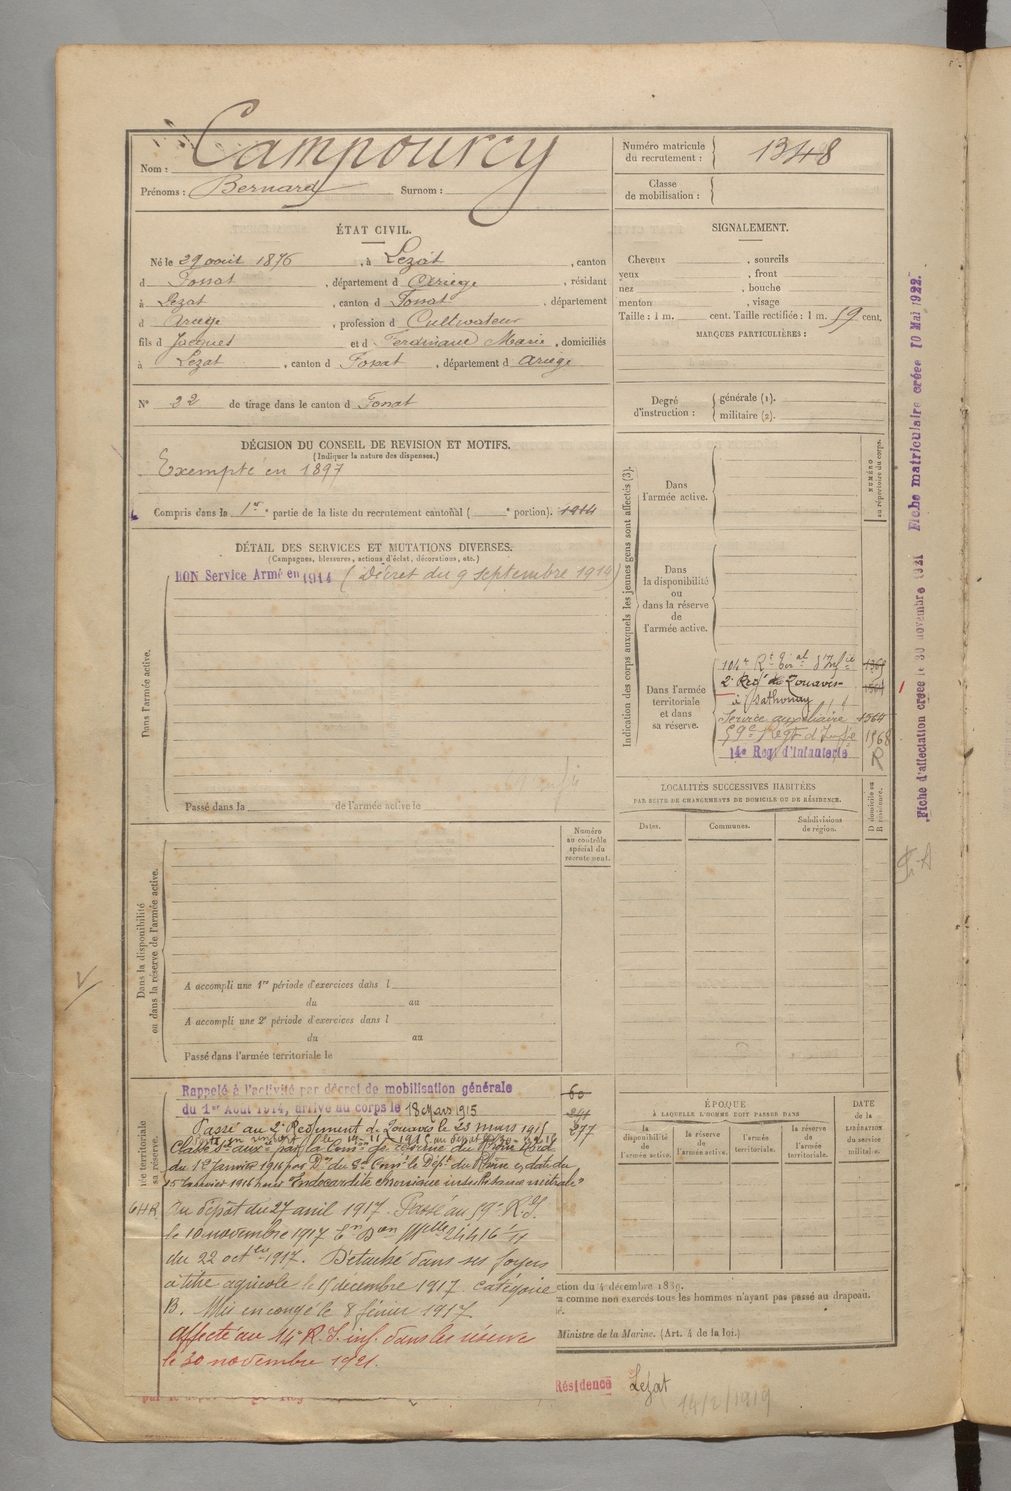 Nom : Campourcy
Prénoms : Bernard Surnom :
Numéro matricule du recrutement : 1348
Classe de mobilisation :
ÉTAT CIVIL.
Né le 29 août 1876, à Lezat, canton
d Fossat, département d Ariège, résidant
à Lezat, canton d Fossat, département
d Ariège, profession d Cultivateur
fils d Jacques et d Ferdinane Marie, domiciliés
à Lezat, canton d Fossat, département d Ariège.
N° 22 de tirage dans le canton d Fossat
SIGNALEMENT.
Cheveux , sourcils
yeux , front
nez , bouche
menton , visage
Taille : 1 m. cent. Taille rectifiée : 1 m. 59 cent.
MARQUES PARTICULIÈRES :
Degré d'instruction : générale (1).
militaire (2).
DÉCISION DU CONSEIL DE REVISION ET MOTIFS.
(Indiquer la nature des dispenses.)
Exempté en 1897
Compris dans la 1re partie de la liste du recrutement cantonal ( e portion). 1914
DÉTAIL DES SERVICES ET MUTATIONS DIVERSES.
(Campagnes, blessures, actions d'éclat, décorations, etc.)
Dans l'armée active.
BON Service Armé en 1914 (Décret du 9 septembre 1914)
Passé dans la de l'armée active le
Indication des corps auxquels les jeunes gens sont affectés (3).
NUMÉRO au répertoire du corps.
Dans l'armée active.
Dans la disponibilité ou dans la réserve de l'armée active.
Dans l'armée territoriale et dans sa réserve.
104e Rt d'Infie
2e Regt de Zouaves
à Sathonay
Service auxiliaire 1564
59e Regt d'Infie 1968
14e Reg. d'Infanterie R
LOCALITÉS SUCCESSIVES HABITÉES
PAR SUITE DE CHANGEMENTS DE DOMICILE OU DE RÉSIDENCE.
Dates. Communes. Subdivisions de région.
D domicile ou R résidence.
Numéro au contrôle spécial du recrutement.
Dans la disponibilité ou dans la réserve de l'armée active.
A accompli une 1re période d'exercices dans l
du au
A accompli une 2e période d'exercices dans l
du au
Passé dans l'armée territoriale le
Rappelé à l'activité par décret de mobilisation générale 60
du 1er Août 1914, arrive au corps le 18 Mars 1915 241
Passé au 2e Regiment de Zouaves le 23 mars 1915 277
Classé Sce auxre par la Comon de réforme du Rhône
du 1er Janvier 1916 par Don du Gal Comt le Dept du Rhône en date du
15 Janvier 1916 Endocardite chronique insuffisance mitrale
Au dépôt du 27 avril 1917. Passé au 59e R.I.
le 10 novembre 1917 En Don Mlle 24416 1/11
du 22 octbre 1917. Détaché dans ses foyers
à titre agricole le 15 décembre 1917 catégorie
B. Mis en congé le 8 février 1917
affecté au 14e R.I. inf. dans les réserve
le 30 novembre 1921.
ÉPOQUE
À LAQUELLE L'HOMME DOIT PASSER DANS
la disponibilité de l'armée active.
la réserve de l'armée active.
l'armée territoriale.
la réserve de l'armée territoriale.
DATE de la LIBÉRATION du service militaire.
ction du 4 décembre 1889.
a comme non exercés tous les hommes n'ayant pas passé au drapeau.
Ministre de la Marine. (Art. 4 de la loi.)
Résidence Lezat
14/2/1919
Fiche d'affectation créée le 30 novembre 1921 Fiche matriculaire créée 10 Mai 1922.